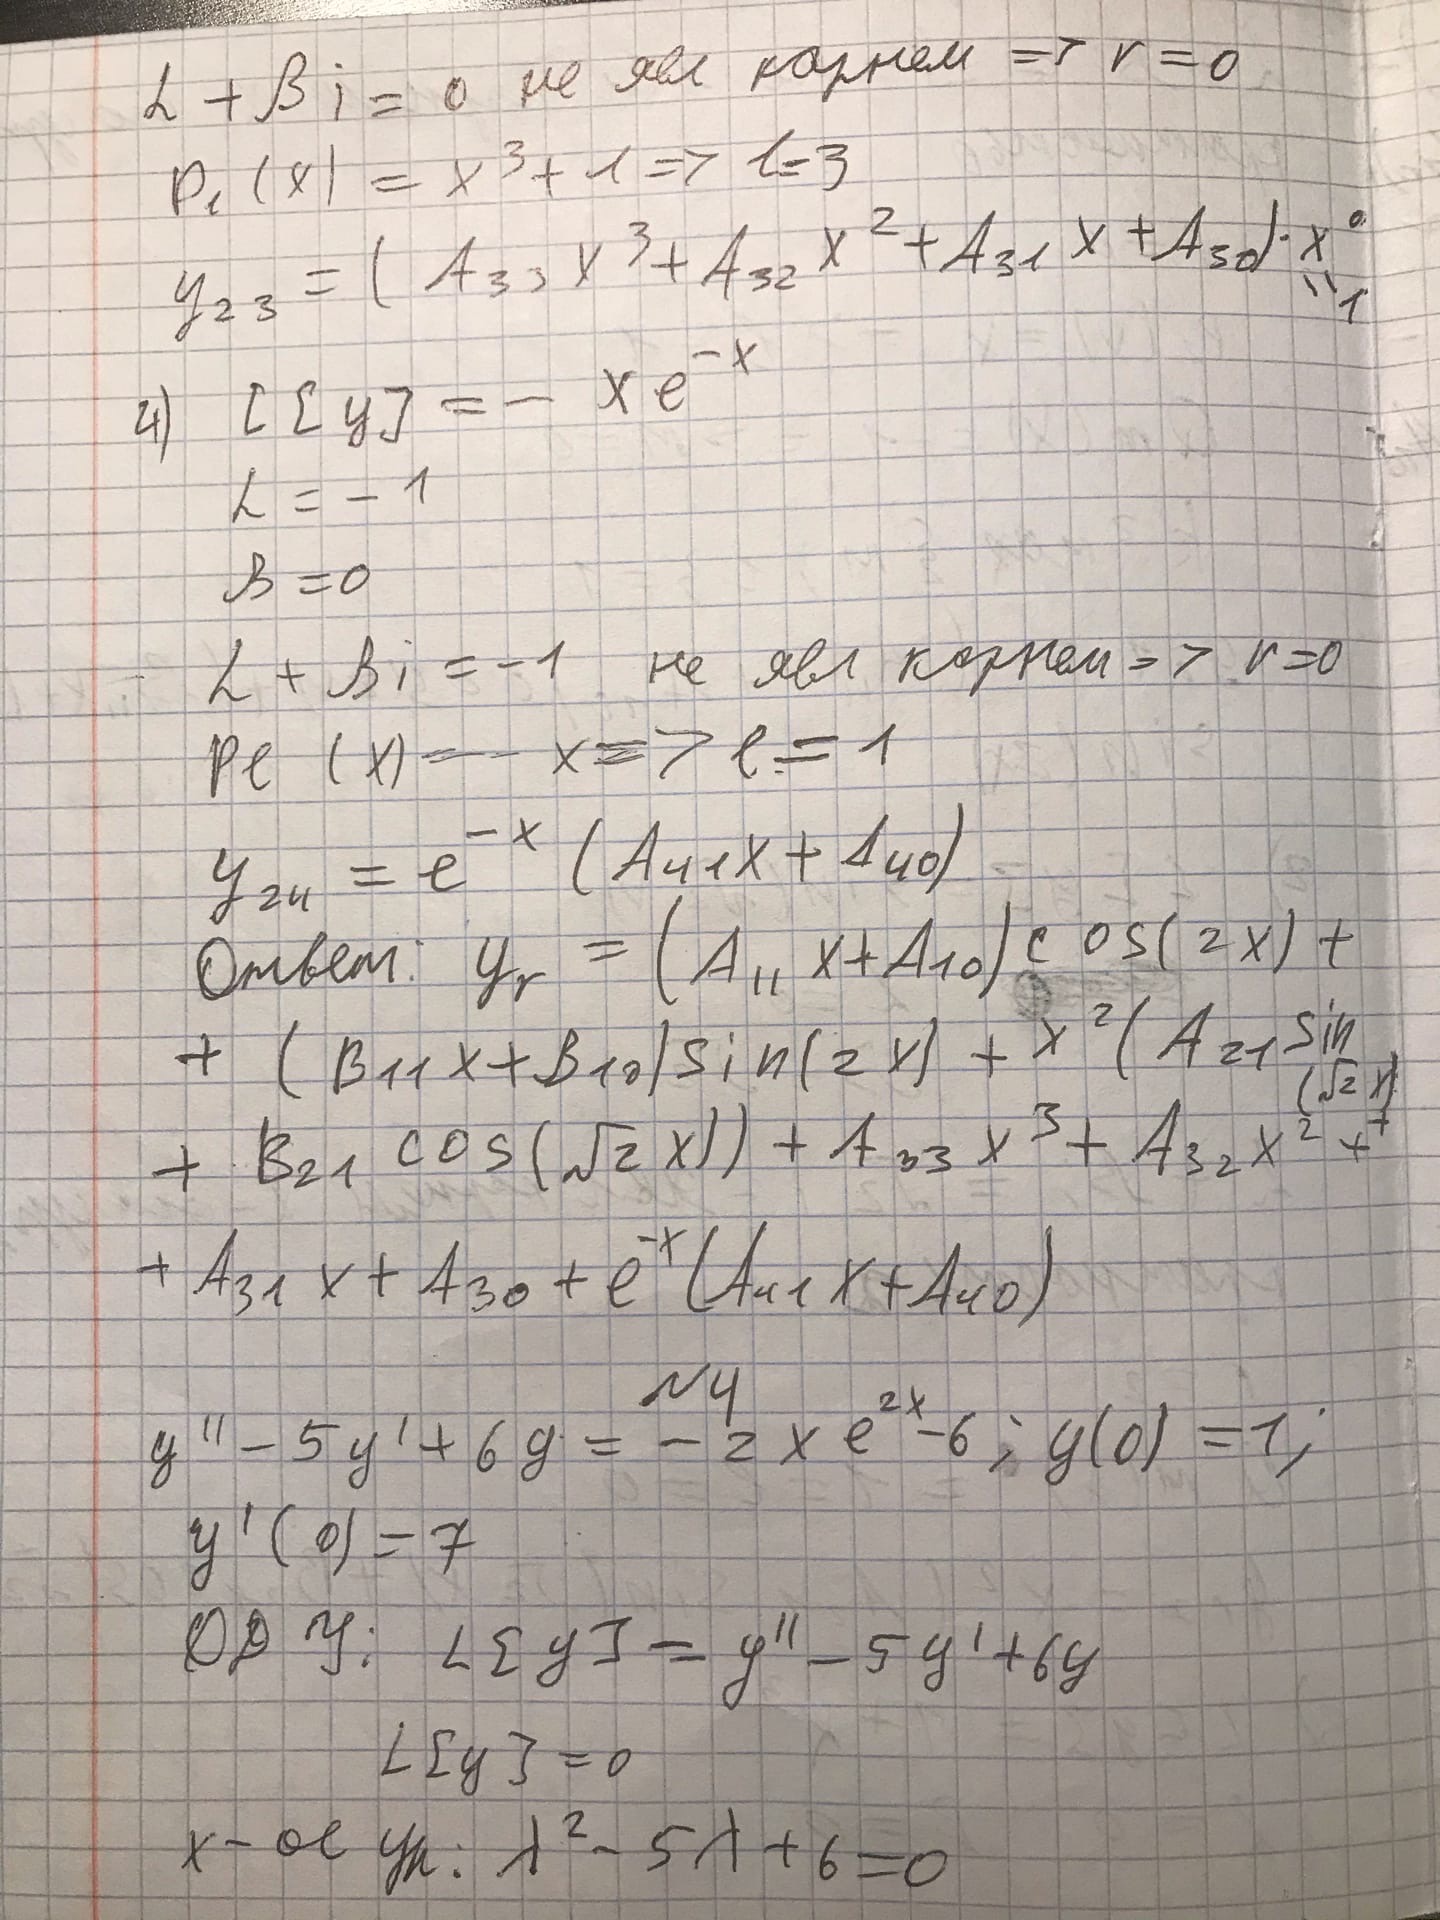 α + βi = 0 не явл корнем => r = 0
Pₗ(x) = x³ + 1 => l = 3
y₂₃ = (A₃₃x³ + A₃₂x² + A₃₁x + A₃₀)·x⁰
"1
4) L[y] = - xe⁻ˣ
α = -1
β = 0
α + βi = -1 не явл корнем => r = 0
Pₗ(x) = - x => l = 1
y₂₄ = e⁻ˣ (A₄₁x + A₄₀)
Ответ: yᵣ = (A₁₁x + A₁₀)cos(2x) +
+ (B₁₁x + B₁₀)sin(2x) + x²(A₂₁ sin
(√2 x) +
+ B₂₁ cos(√2 x)) + A₃₃x³ + A₃₂x² +
+ A₃₁x + A₃₀ + e⁻ˣ(A₄₁x + A₄₀)
№4
y'' - 5y' + 6y = - 2xe²ˣ - 6; y(0) = 1;
y'(0) = 7
ОДУ: L[y] = y'' - 5y' + 6y
L[y] = 0
х-ое ур: λ² - 5λ + 6 = 0